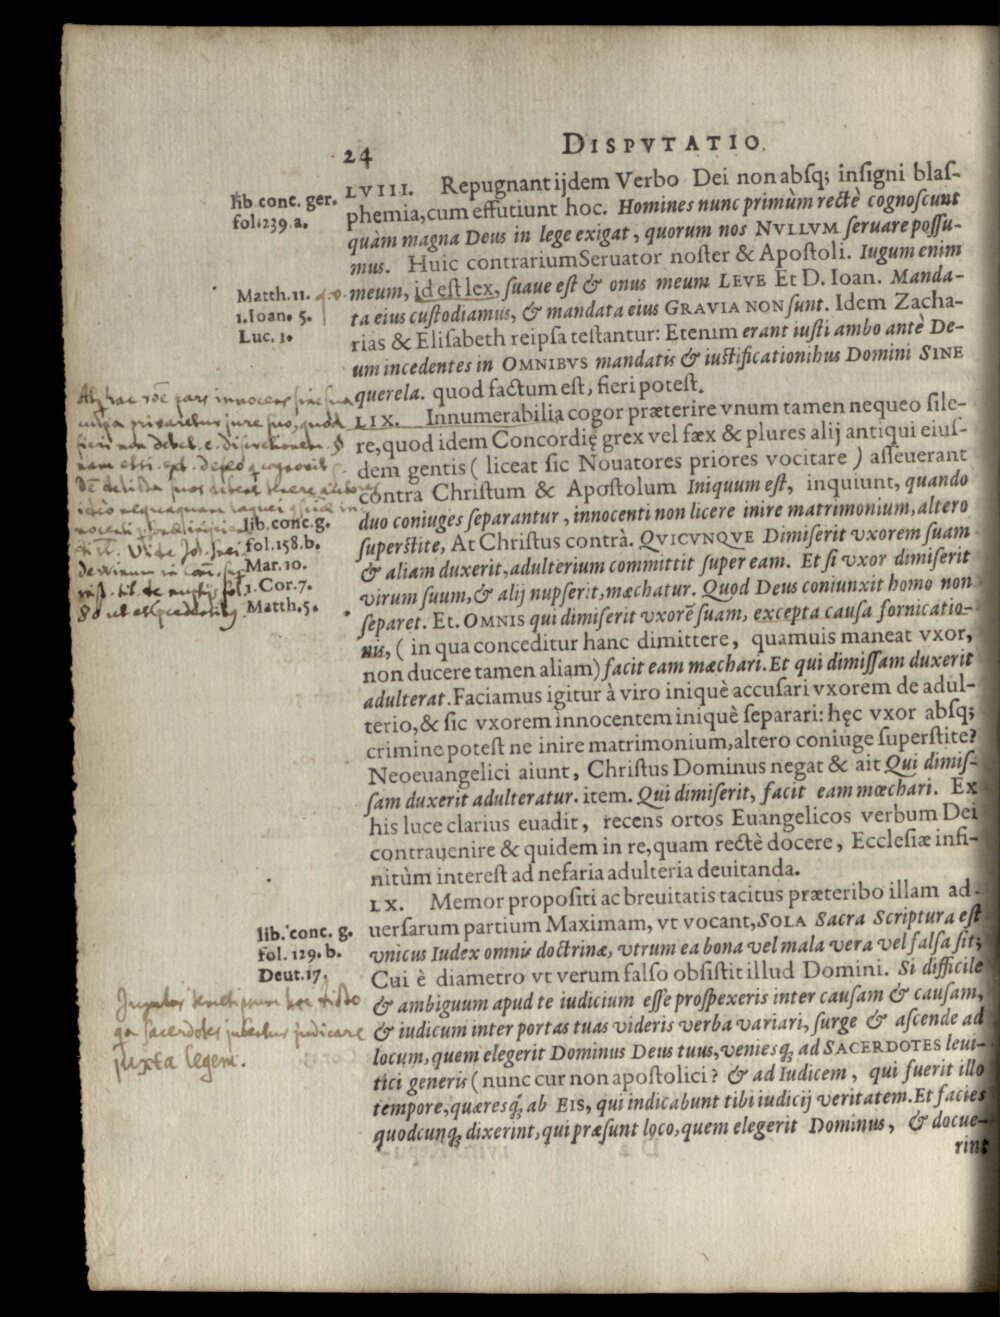 24 DISPVTATIO.
lib. conc. ger.
fol. 239. a.
LVIII. Repugnant ijdem Verbo Dei non absq; insigni blas-
phemia, cum effutiunt hoc. Homines nunc primùm rectè cognoscunt
quàm magna Deus in lege exigat, quorum nos NVLLVM seruare possu-
mus. Huic contrarium Seruator noster & Apostoli. Iugum enim
Matth. 11.
meum, id est lex, suaue est & onus meum LEVE Et D. Ioan. Manda-
1. Ioan. 5.
ta eius custodiamus, & mandata eius GRAVIA NON sunt. Idem Zacha-
Luc. 1.
rias & Elisabeth reipsa testantur: Etenim erant iusti ambo antè De-
um incedentes in OMNIBVS mandatis & iustificationibus Domini SINE
querela. quod factum est, fieri potest.
LIX. Innumerabilia cogor præterire vnum tamen nequeo sile-
re, quod idem Concordię grex vel fæx & plures alij antiqui eius-
dem gentis ( liceat sic Nouatores priores vocitare ) asseuerant
contra Christum & Apostolum Iniquum est, inquiunt, quando
lib. conc. g.
fol. 158. b.
duo coniuges separantur, innocenti non licere inire matrimonium, altero
superstite, At Christus contrà. QVICVNQVE Dimiserit vxorem suam
Mar. 10.
& aliam duxerit, adulterium committit super eam. Et si vxor dimiserit
1. Cor. 7.
virum suum, & alij nupserit, mæchatur. Quod Deus coniunxit homo non
Matth. 5.
separet. Et. OMNIS qui dimiserit vxorē suam, excepta causa fornicatio-
nis, ( in qua conceditur hanc dimittere, quamuis maneat vxor,
non ducere tamen aliam) facit eam mæchari. Et qui dimissam duxerit
adulterat. Faciamus igitur à viro iniquè accusari vxorem de adul-
terio, & sic vxorem innocentem iniquè separari: hęc vxor absq;
crimine potest ne inire matrimonium, altero coniuge superstite?
Neoeuangelici aiunt, Christus Dominus negat & ait Qui dimis-
sam duxerit adulteratur. item. Qui dimiserit, facit eam mœchari. Ex
his luce clarius euadit, recens ortos Euangelicos verbum Dei
contrauenire & quidem in re, quam rectè docere, Ecclesiæ infi-
nitùm interest ad nefaria adulteria deuitanda.
LX. Memor propositi ac breuitatis tacitus præteribo illam ad-
lib. conc. g.
uersarum partium Maximam, vt vocant, SOLA Sacra Scriptura est
fol. 129. b.
vnicus Iudex omnis doctrinæ, vtrum ea bona vel mala vera vel falsa sit;
Deut. 17.
Cui è diametro vt verum falso obsistit illud Domini. Si difficile
& ambiguum apud te iudicium esse prospexeris inter causam & causam,
& iudicum inter portas tuas videris verba variari, surge & ascende ad
sacerdotes
judicare
juxta legem.
locum, quem elegerit Dominus Deus tuus, veniesq; ad SACERDOTES leui-
tici generis ( nunc cur non apostolici? & ad Iudicem, qui fuerit illo
tempore, quæresq; ab EIS, qui indicabunt tibi iudicij veritatem. Et facies
quodcunq; dixerint, qui præsunt loco, quem elegerit Dominus, & docue-
rint